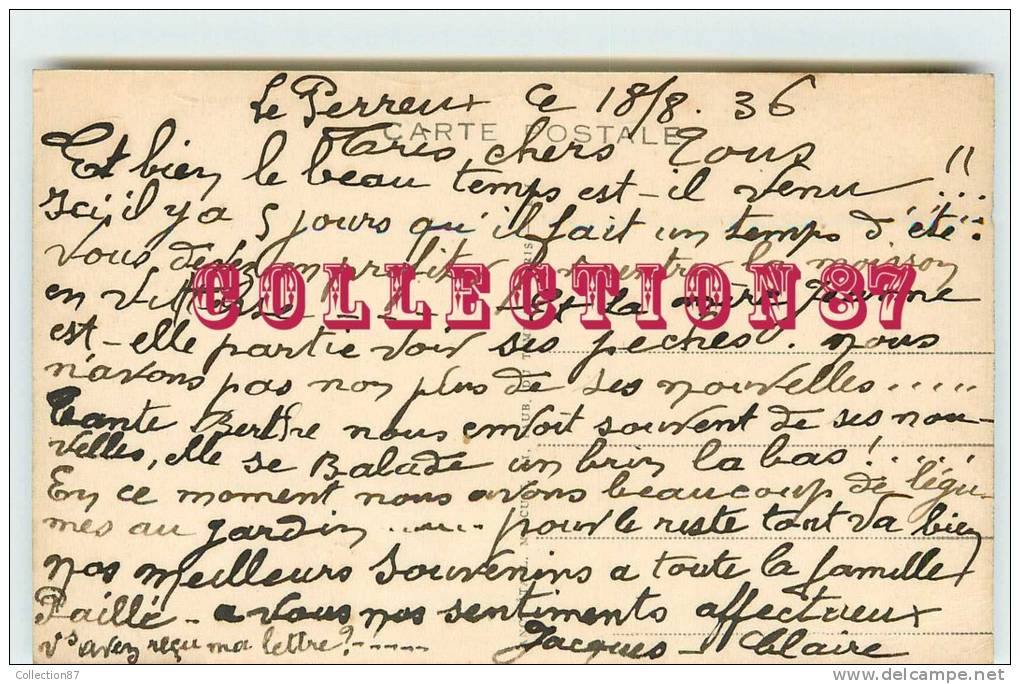 Le Perreux ce 18/8. 36
CARTE POSTALE
Très chers Tous
Et bien le beau temps est-il venu !!...
Ici, il y a 5 jours qu'il fait un temps d'été..
vous devez en profiter la moisson
COLLECTION 87
en Et la mère Jeanne
est-elle partie voir ses pêches. nous
n'avons pas non plus de ses nouvelles.....
Tante Berthe nous envoit souvent de ses nou-
velles, elle se Balade un brin la bas!.....
En ce moment nous avons beaucoup de légu-
mes au jardin ...... pour le reste tout va bien
nos meilleurs Souvenirs a toute la famille
Paillé - a vous nos sentiments affectueux
vs avez reçu ma lettre? -----
Jacques - Claire
Collection87
www.delcampe.net